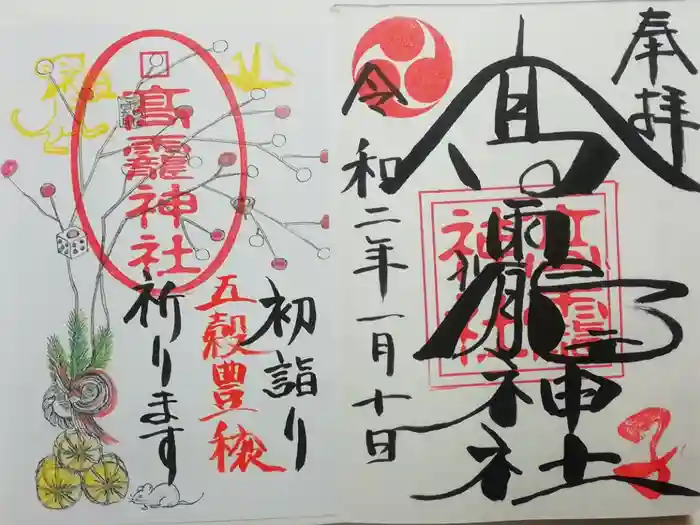 奉拝
髙龗神社
髙龗神社
子
令和二年一月十日
初詣り
五穀豊穣
祈ります
髙龗神社